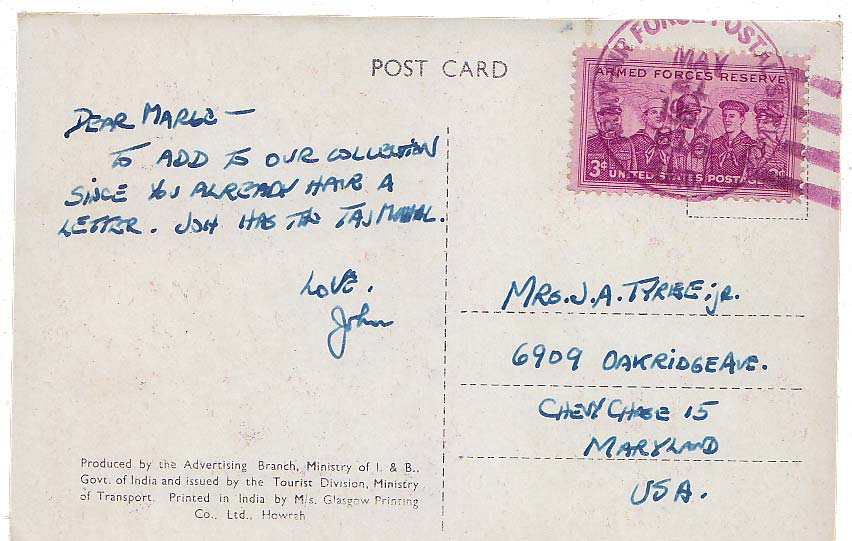 POST CARD
AIR FORCE POSTAL
MAY
ARMED FORCES RESERVE
3¢ UNITED STATES POSTAGE 3¢
DEAR MARGE —
TO ADD TO OUR COLLECTION
SINCE YOU ALREADY HAVE A
LETTER. JOH HAS THE TAJ MAHAL.
LOVE.
John
MRS. J. A. TYREE, jr.
6909 OAKRIDGE AVE.
CHEVY CHASE 15
MARYLAND
USA.
Produced by the Advertising Branch, Ministry of I. & B.,
Govt. of India and issued by the Tourist Division, Ministry
of Transport. Printed in India by M/s. Glasgow Printing
Co., Ltd., Howrah